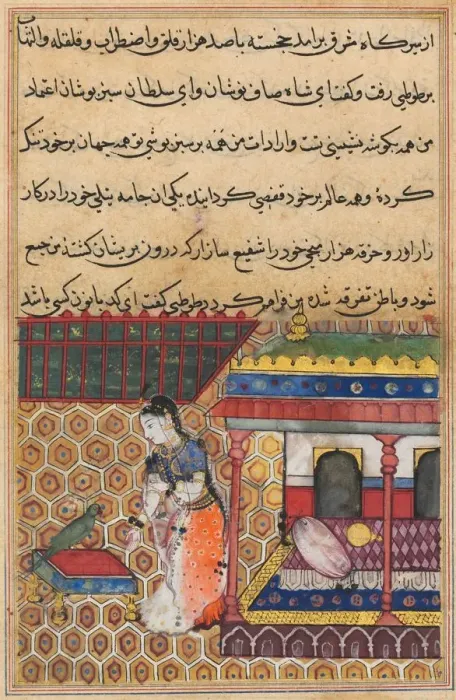 از سیرکاه شرق برامد خجسته باصد هزار قلق و اضطراب و قلقله و التهاب
برطوطی رفت و کفت ای شاه صاف نوشان و ای سلطان سبز پوشان اعتماد
من همه بکوشه نشینی تست و ارادات من همه بر سبز پوشی تو همه جهان بر خود تنک
کرده و همه عالم بر خود قفصی کردانیده یکی ان جامه نیلی خود را در کار
زار اور و خرقه هزار میخی خود را شفیع ساز تا که درون پریشان کشته من جمع
شود و باطن تفرقه شده من فراهم کردد طوطی کفت ای کدبانو کسی باشد